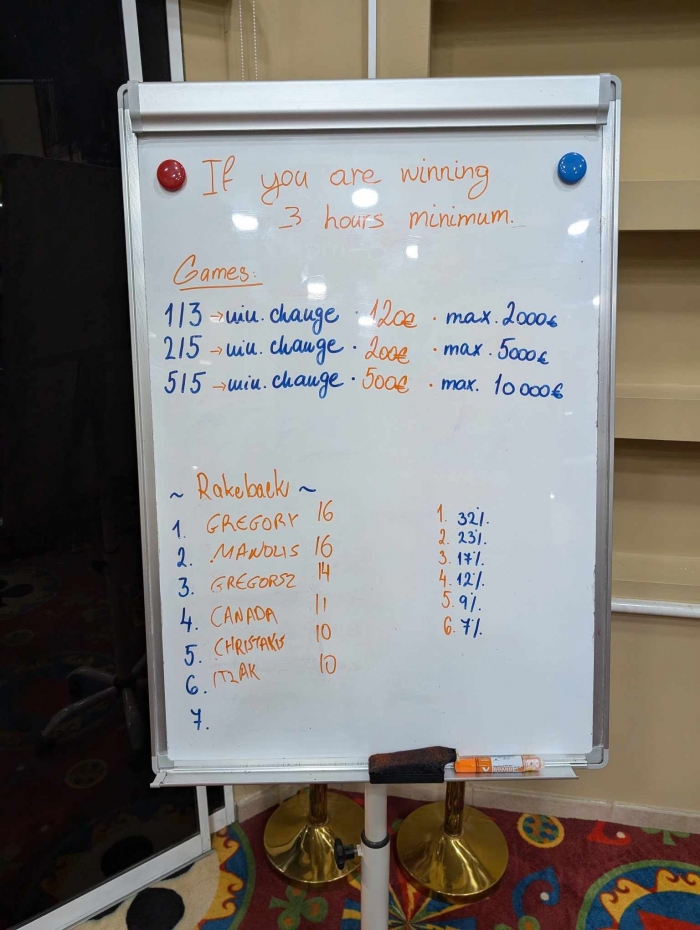 If you are winning
3 hours minimum.
Games:
1/3 → min. change · 120€ · max. 2000€
2/5 → min. change · 200€ · max. 5000€
5/5 → min. change · 500€ · max. 10 000€
~ Rakeback ~
1. GREGORY 16
2. MANOLIS 16
3. 14
4. CANADA 11
5. 10
6. 10
7.
1. 32%.
2. 23%.
3. 17%.
4. 12%.
5. 9%.
6. 7%.